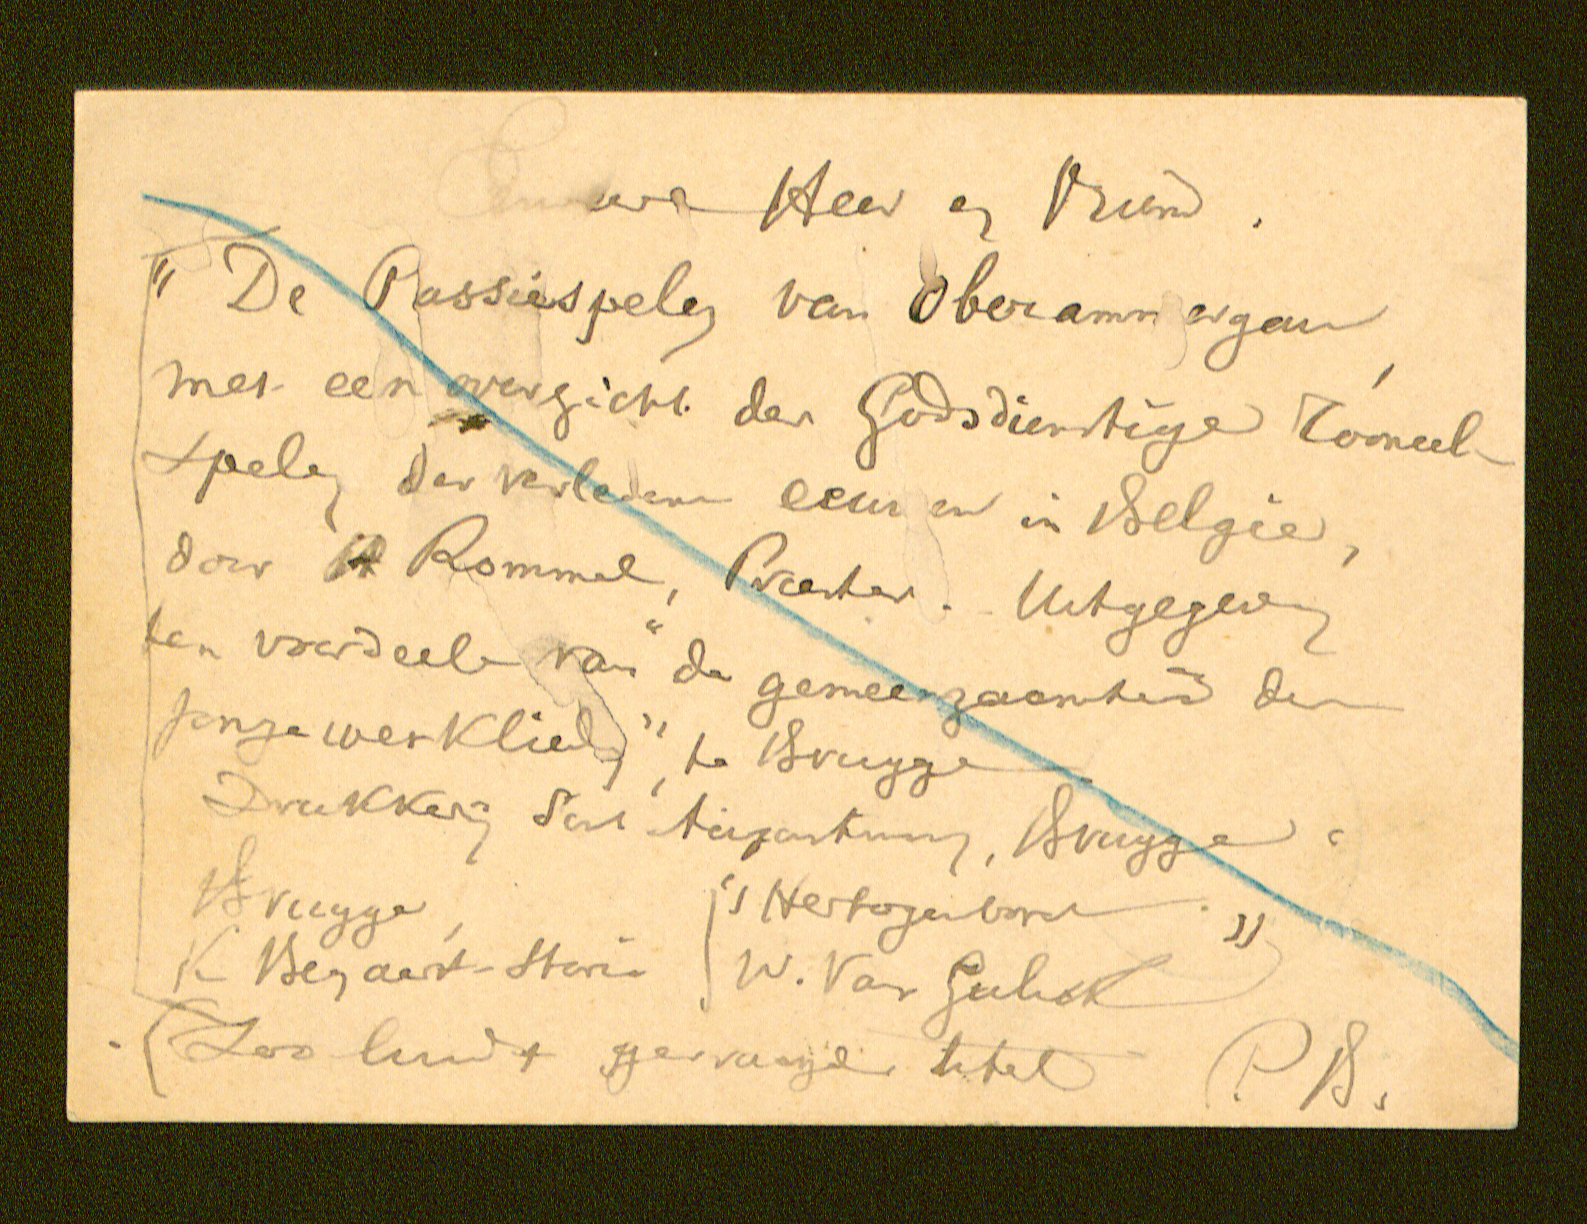 Eerwe Heer en Vriend.
"De Passiespelen van Oberammergau,
met een overzicht der Godsdienstige Tooneel-
spelen der verledene eeuwen in België,
door H Rommel, Priester. Uitgegeven
ten voordeele van "de gemeenzaamheid der
jonge werklieden", te Brugge
Drukkerij Sint Augustinus, Brugge.
Brugge,
K Beyaert-Storie
's Hertogenbosch
W. Van Gulick "
(Zoo luidt gevraagde titel P B.